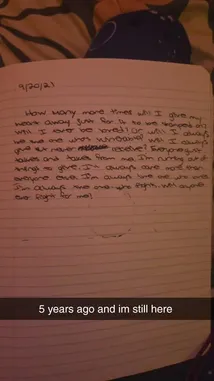 9/20/21
How many more times will I give my
heart away just for it to be
will I ever be loved? Or will I always
be the one who's Will I always
give but never receive? Everyone just
takes and takes from me. I'm running out of
things to give. I'm always care more than
everyone else. I'm always the one who
I'm always the one who fights. Will anyone
ever fight for me?
5 years ago and im still here